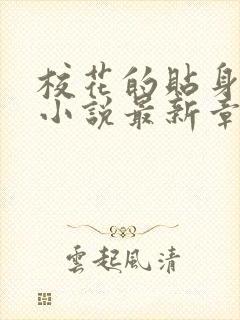 校花的貼身
小說最新章
雲起風清